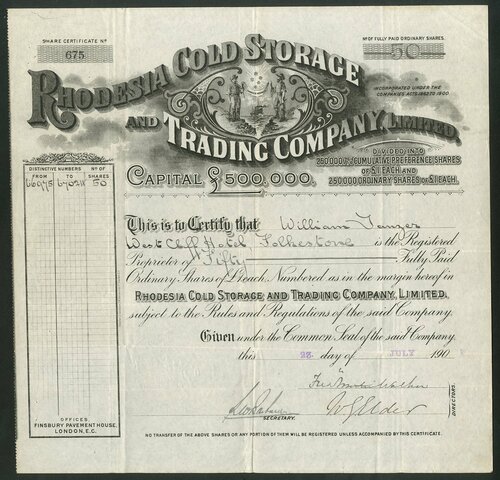 SHARE CERTIFICATE No
675
No OF FULLY PAID ORDINARY SHARES.
50
RHODESIA COLD STORAGE
AND TRADING COMPANY, LIMITED.
INCORPORATED UNDER THE
COMPANIES ACTS 1862 TO 1900
DIVIDED INTO
250,000 7% CUMULATIVE PREFERENCE SHARES
OF £1 EACH AND
250,000 ORDINARY SHARES OF £1 EACH.
CAPITAL £500,000.
DISTINCTIVE NUMBERS
FROM TO
No OF SHARES
50
This is to Certify that William
West Cliff Hotel Folkestone is the Registered
Proprietor of Fifty Fully Paid
Ordinary Shares of £1 each, Numbered as in the margin hereof in
RHODESIA COLD STORAGE AND TRADING COMPANY, LIMITED.
subject to the Rules and Regulations of the said Company.
Given under the Common Seal of the said Company
this 23 day of JULY 190
DIRECTORS.
SECRETARY.
OFFICES
FINSBURY PAVEMENT HOUSE,
LONDON, E.C.
NO TRANSFER OF THE ABOVE SHARES OR ANY PORTION OF THEM WILL BE REGISTERED UNLESS ACCOMPANIED BY THIS CERTIFICATE.